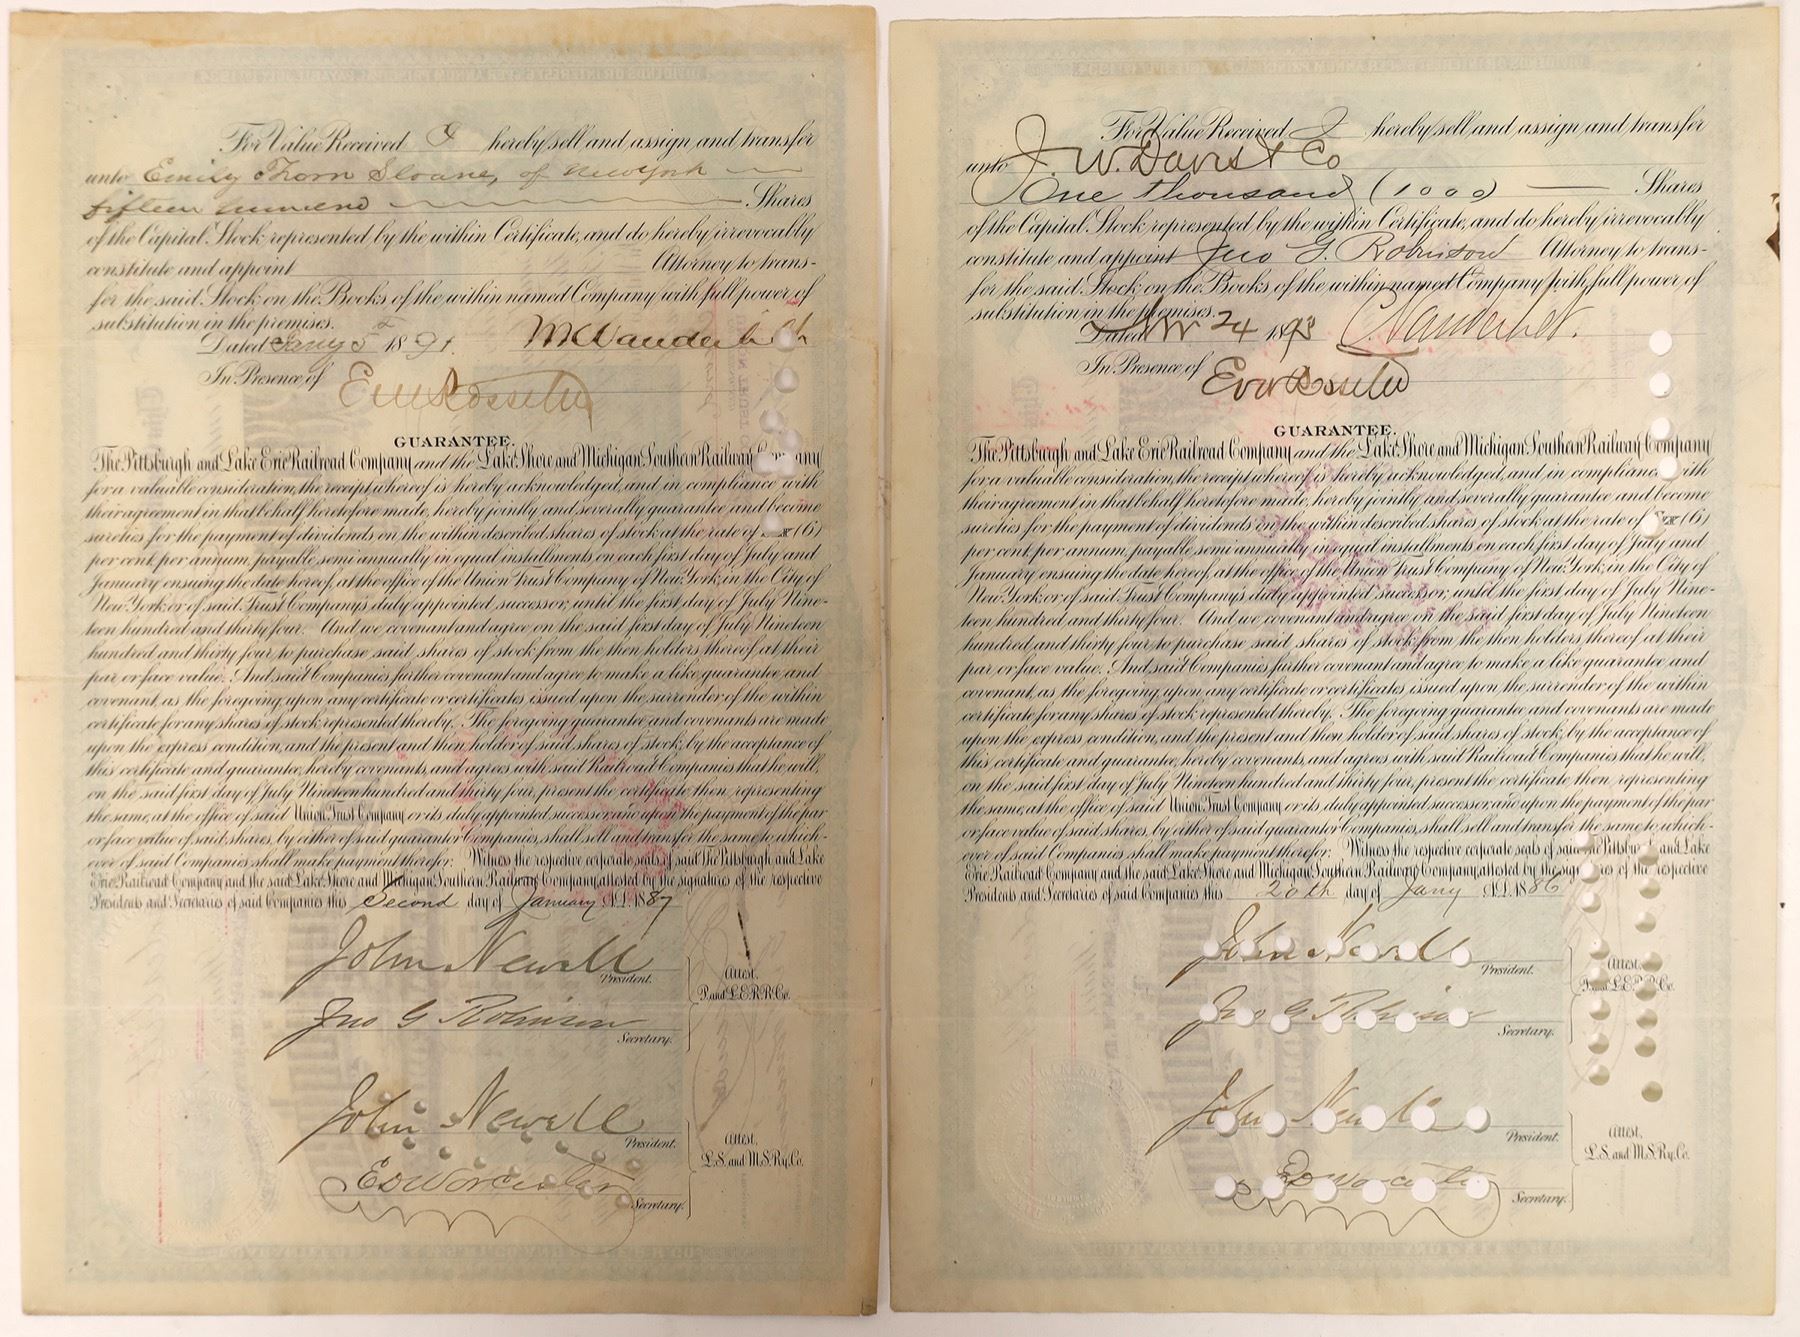 For Value Received I hereby sell and assign and transfer
unto Emily Thorn Sloane, of New York
fifteen hundred Shares
of the Capital Stock represented by the within Certificate, and do hereby irrevocably
constitute and appoint Attorney to trans-
fer the said Stock on the Books of the within named Company with full power of
substitution in the premises.
Dated Jany 5 1891.
In Presence of
GUARANTEE.
The Pittsburgh and Lake Erie Railroad Company and the Lake Shore and Michigan Southern Railway Company
for a valuable consideration, the receipt whereof is hereby acknowledged, and in compliance with
their agreement in that behalf heretofore made, hereby jointly and severally guarantee and become
sureties for the payment of dividends on the within described shares of stock at the rate of (6)
per cent. per annum, payable semi annually in equal installments on each first day of July and
January ensuing the date hereof, at the office of the Union Trust Company of New York, in the City of
New York or of said Trust Company's duly appointed successor, until the first day of July Nine-
teen hundred and thirty four. And we covenant and agree on the said first day of July Nineteen
hundred and thirty four to purchase said shares of stock from the then holders thereof at their
par or face value. And said Companies further covenant and agree to make a like guarantee and
covenant, as the foregoing, upon any certificate or certificates issued upon the surrender of the within
certificate for any shares of stock represented thereby. The foregoing guarantee and covenants are made
upon the express condition, and the present and then holder of said shares of stock, by the acceptance of
this certificate and guarantee, hereby covenants, and agrees with said Railroad Companies that he will,
on the said first day of July Nineteen hundred and thirty four, present the certificate then representing
the same, at the office of said Union Trust Company or its duly appointed successor, and upon the payment of the par
or face value of said shares, by either of said guarantor Companies, shall sell and transfer the same to which-
ever of said Companies shall make payment therefor. Witness the respective corporate seals of said The Pittsburgh and Lake
Erie Railroad Company and the said Lake Shore and Michigan Southern Railway Company, attested by the signatures of the respective
Presidents and Secretaries of said Companies this Second day of January A.D. 1887
John Newell
President.
Attest,
P. and L. E. R. R. Co.
Jno G Robinson
Secretary.
John Newell
President.
Attest,
L. S. and M. S. Ry. Co.
ED Worcester
Secretary.
For Value Received I hereby sell and assign and transfer
unto J. W. Davis & Co
One thousand (1000) Shares
of the Capital Stock represented by the within Certificate, and do hereby irrevocably
constitute and appoint Jno G. Robinson Attorney to trans-
fer the said Stock on the Books of the within named Company with full power of
substitution in the premises.
Dated Nov 24 1893 C. Vanderbilt.
In Presence of
GUARANTEE.
The Pittsburgh and Lake Erie Railroad Company and the Lake Shore and Michigan Southern Railway Company
for a valuable consideration, the receipt whereof is hereby acknowledged, and in compliance with
their agreement in that behalf heretofore made, hereby jointly and severally guarantee and become
sureties for the payment of dividends on the within described shares of stock at the rate of Six (6)
per cent. per annum, payable semi annually in equal installments on each first day of July and
January ensuing the date hereof, at the office of the Union Trust Company of New York, in the City of
New York or of said Trust Company's duly appointed successor, until the first day of July Nine-
teen hundred and thirty four. And we covenant and agree on the said first day of July Nineteen
hundred and thirty four to purchase said shares of stock from the then holders thereof at their
par or face value. And said Companies further covenant and agree to make a like guarantee and
covenant, as the foregoing, upon any certificate or certificates issued upon the surrender of the within
certificate for any shares of stock represented thereby. The foregoing guarantee and covenants are made
upon the express condition, and the present and then holder of said shares of stock, by the acceptance of
this certificate and guarantee, hereby covenants, and agrees with said Railroad Companies that he will,
on the said first day of July Nineteen hundred and thirty four, present the certificate then representing
the same, at the office of said Union Trust Company or its duly appointed successor, and upon the payment of the par
or face value of said shares, by either of said guarantor Companies, shall sell and transfer the same to which-
ever of said Companies shall make payment therefor. Witness the respective corporate seals of said The Pittsburgh and Lake
Erie Railroad Company and the said Lake Shore and Michigan Southern Railway Company, attested by the signatures of the respective
Presidents and Secretaries of said Companies this 20th day of Jany A.D. 1886
John Newell
President.
Attest,
P. and L. E. R. R. Co.
Jno G Robinson
Secretary.
John Newell
President.
Attest,
L. S. and M. S. Ry. Co.
ED Worcester
Secretary.